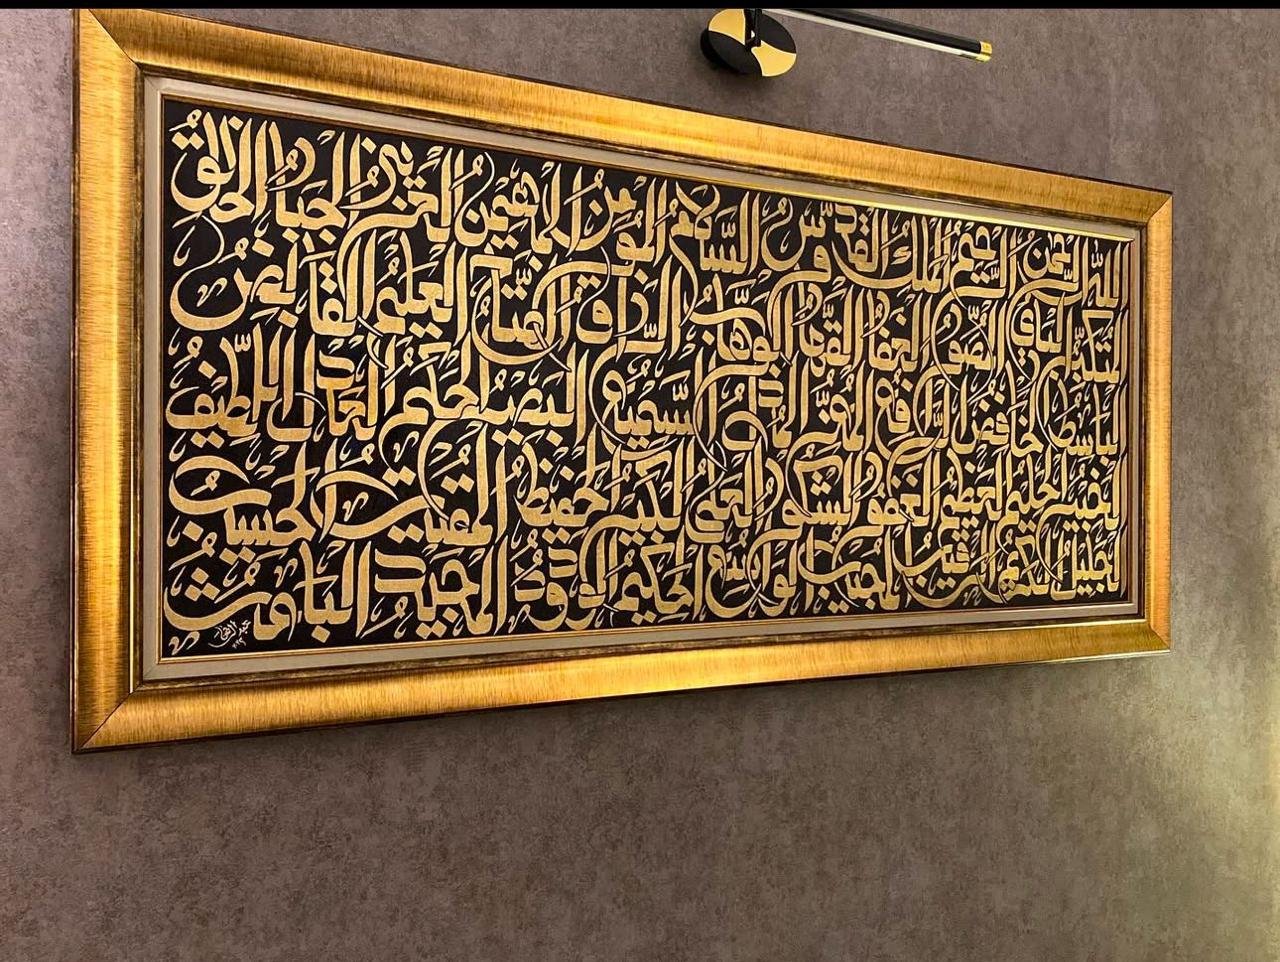 الله الرحمن الرحيم الملك القدوس السلام المؤمن المهيمن العزيز الجبار الخالق
المتكبر الباقي المصور الغفار القهار الوهاب الرزاق الفتاح العليم القابض
الباسط الخافض الرافع المعز المذل السميع البصير الحكم العدل اللطيف
الخبير الحليم العظيم الغفور الشكور العلي الكبير الحفيظ المقيت الحسيب
الجليل الكريم الرقيب المجيب الواسع الحكيم الودود المجيد الباعث